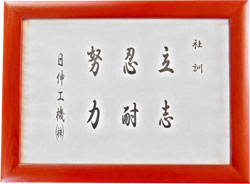 社訓
立志
忍耐
努力
日伸工機㈱